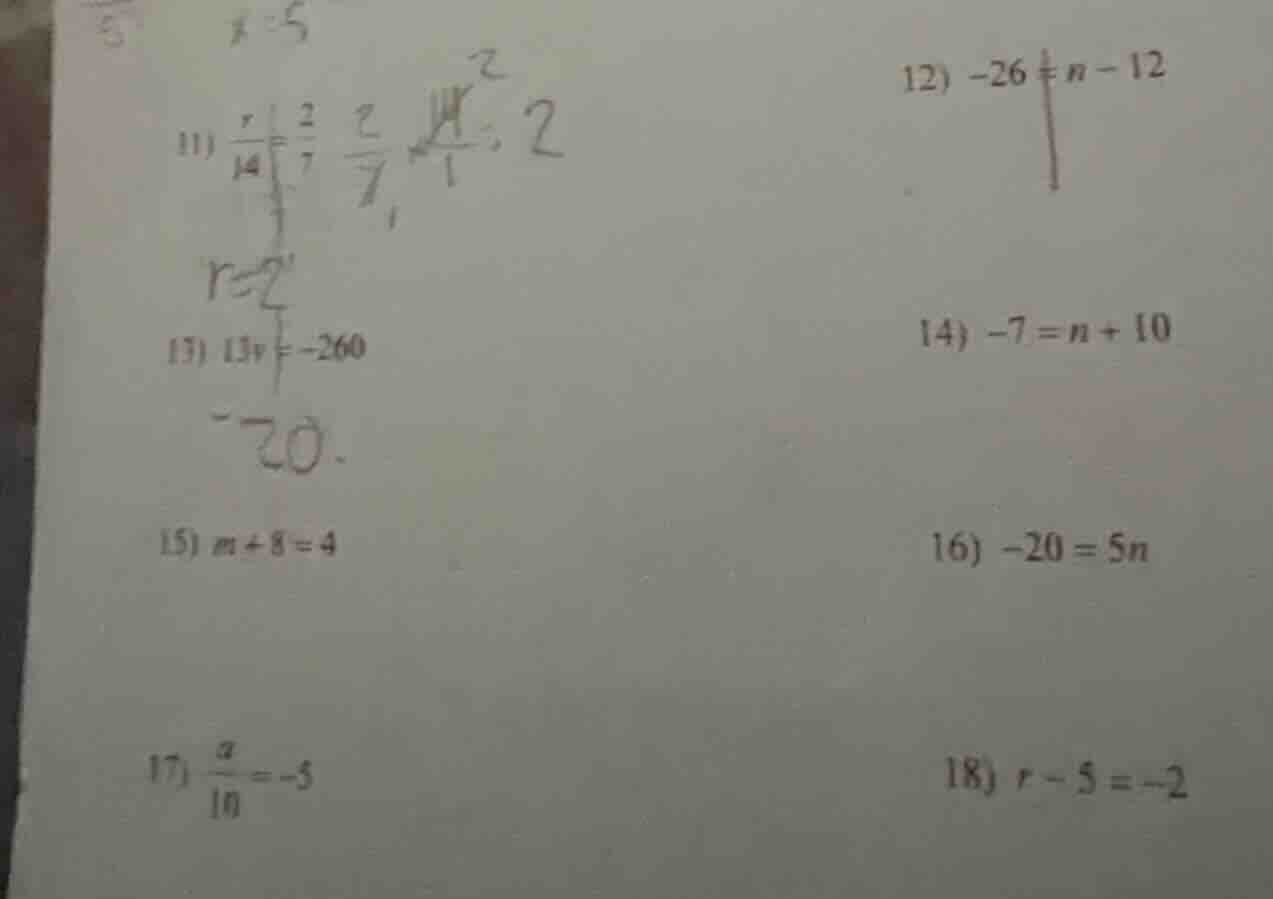 5 x=5
11) r/14 = 2/7 2/7 · 14/1 2 = 2
1
r=2
12) -26 = n - 12
13) 13v = -260
-20.
14) -7 = n + 10
15) m + 8 = 4
16) -20 = 5n
17) a/10 = -5
18) r - 5 = -2